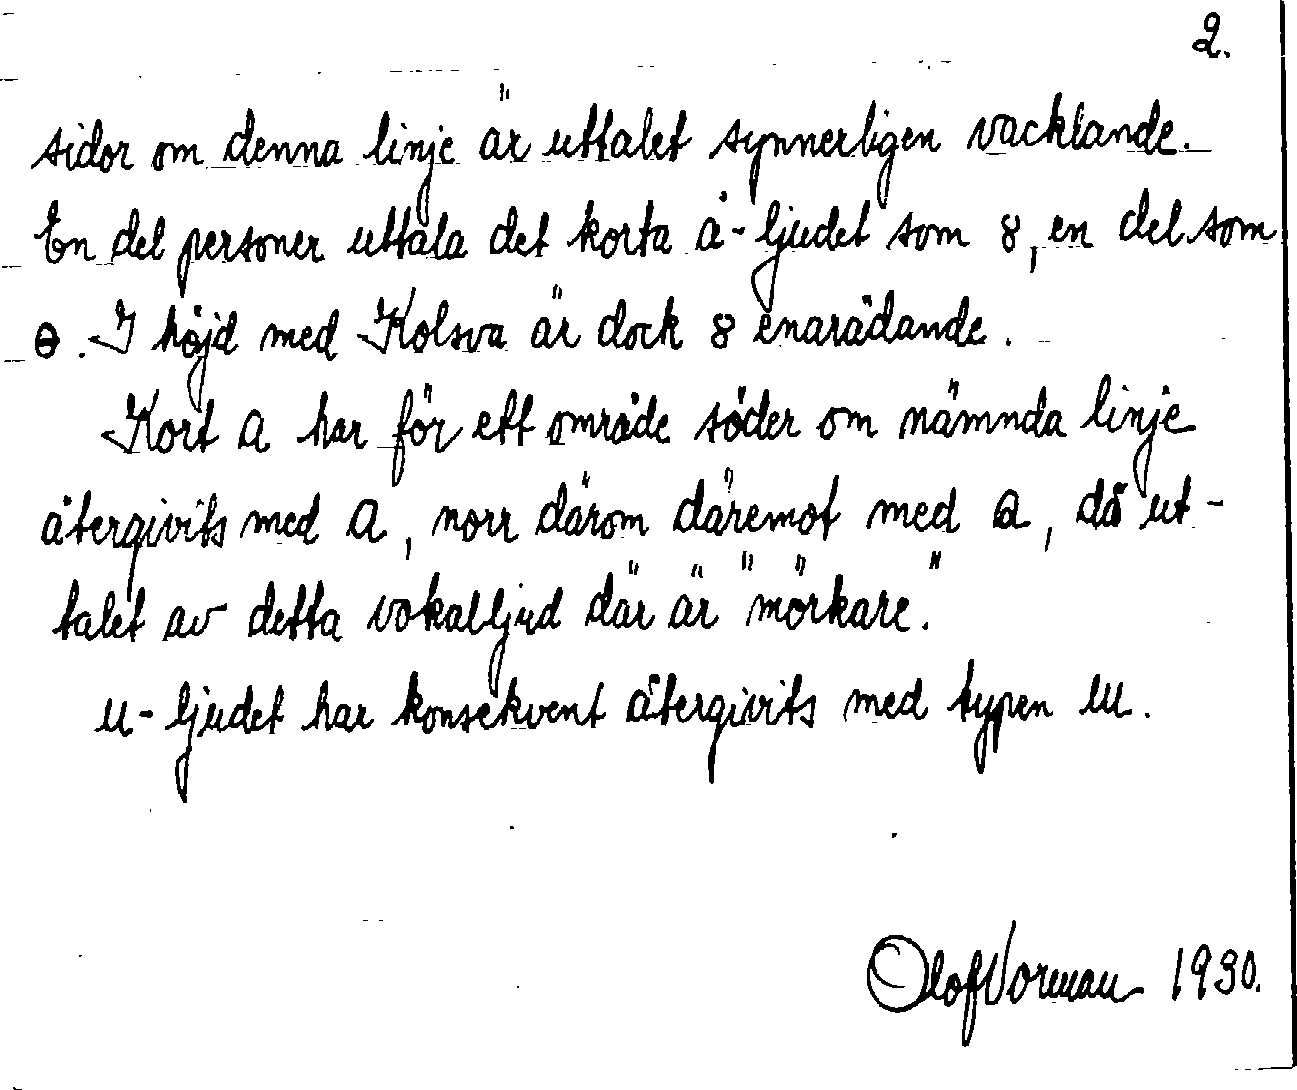 2.
sidor om denna linje är uttalet synnerligen vacklande.
En del personer uttala det korta å-ljudet som 8, en del som
ɵ. I höjd med Kolsva är dock 8 enarådande.
Kort a har för ett område söder om nämnda linje
återgivits med a, norr därom däremot med ɑ, då ut-
talet av detta vokalljud där är "mörkare".
u-ljudet har konsekvent återgivits med typen ɯ.
Olof Vorman 1930.